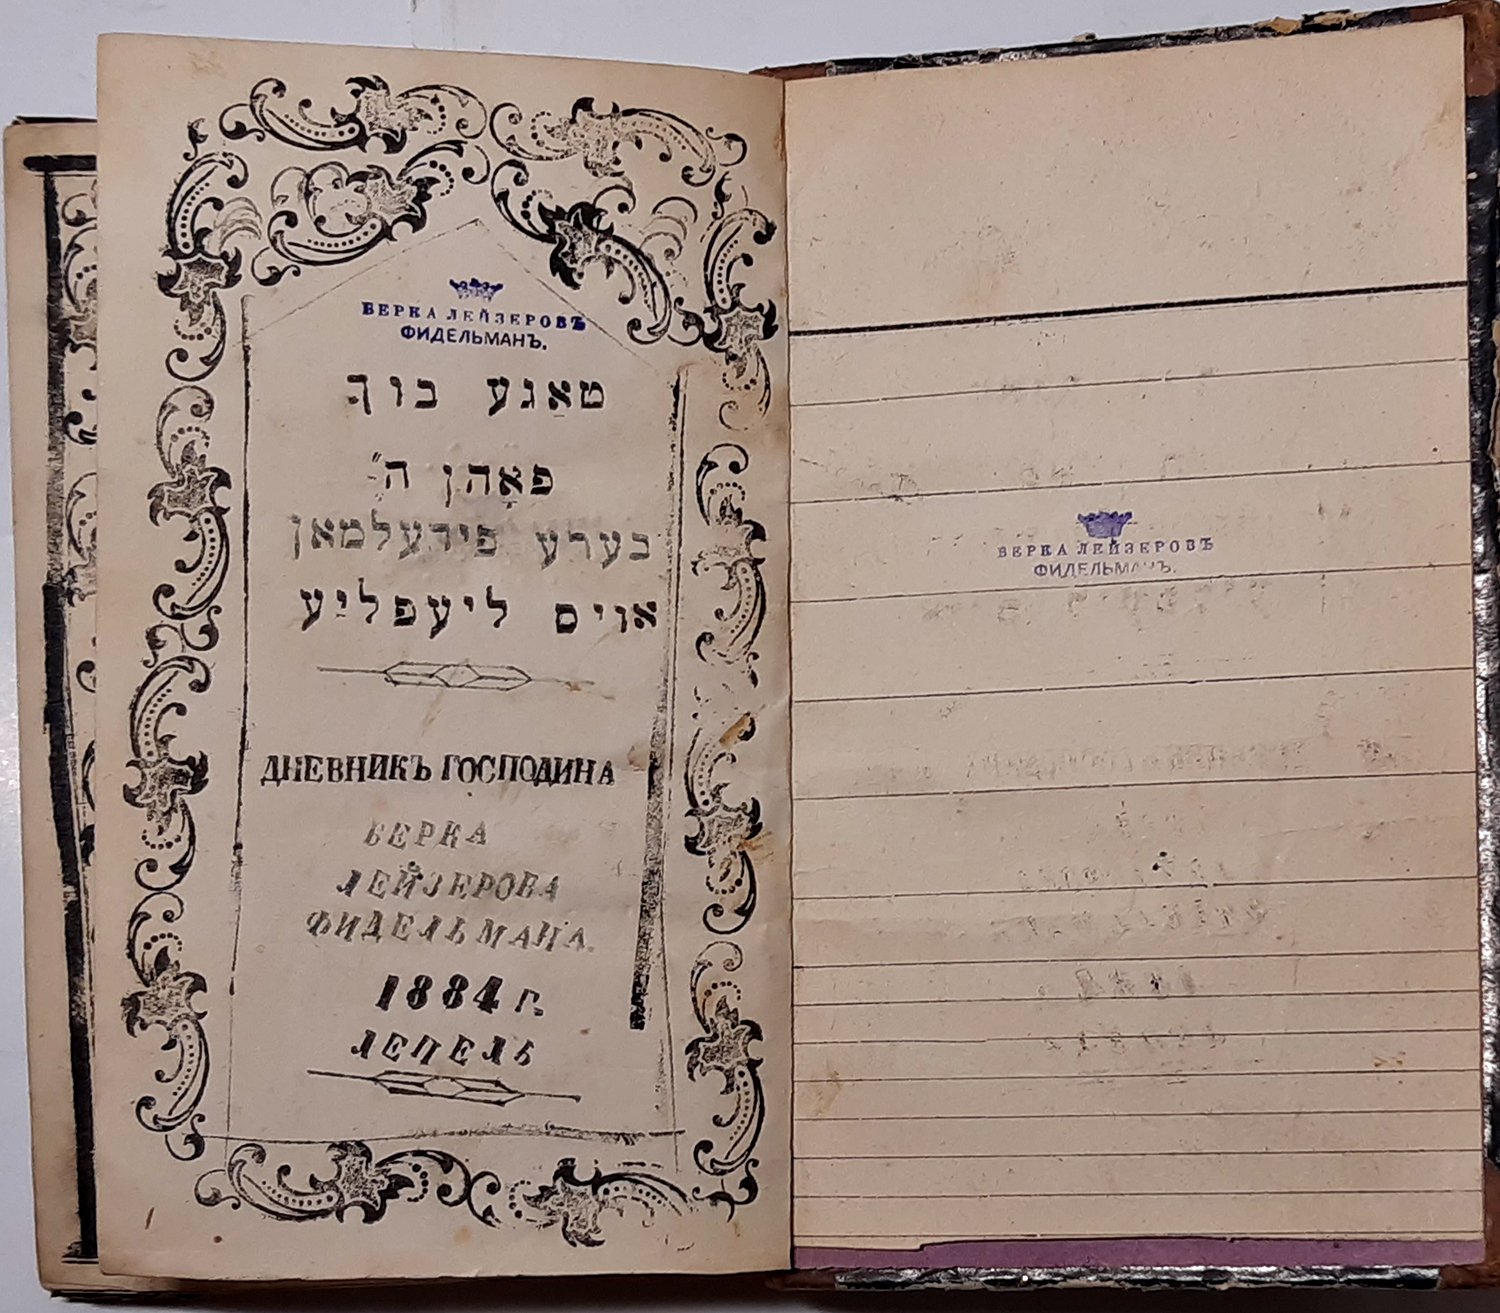 БЕРКА ЛЕЙЗЕРОВЪ
ФИДЕЛЬМАНЪ.
טאָגע בוך
פאָהן ה״
בערע פידעלמאן
אויס ליעפליע
ДНЕВНИКЪ ГОСПОДИНА
БЕРКА
ЛЕЙЗЕРОВА
ФИДЕЛЬМАНА.
1884 г.
ЛЕПЕЛЬ
БЕРКА ЛЕЙЗЕРОВЪ
ФИДЕЛЬМАНЪ.